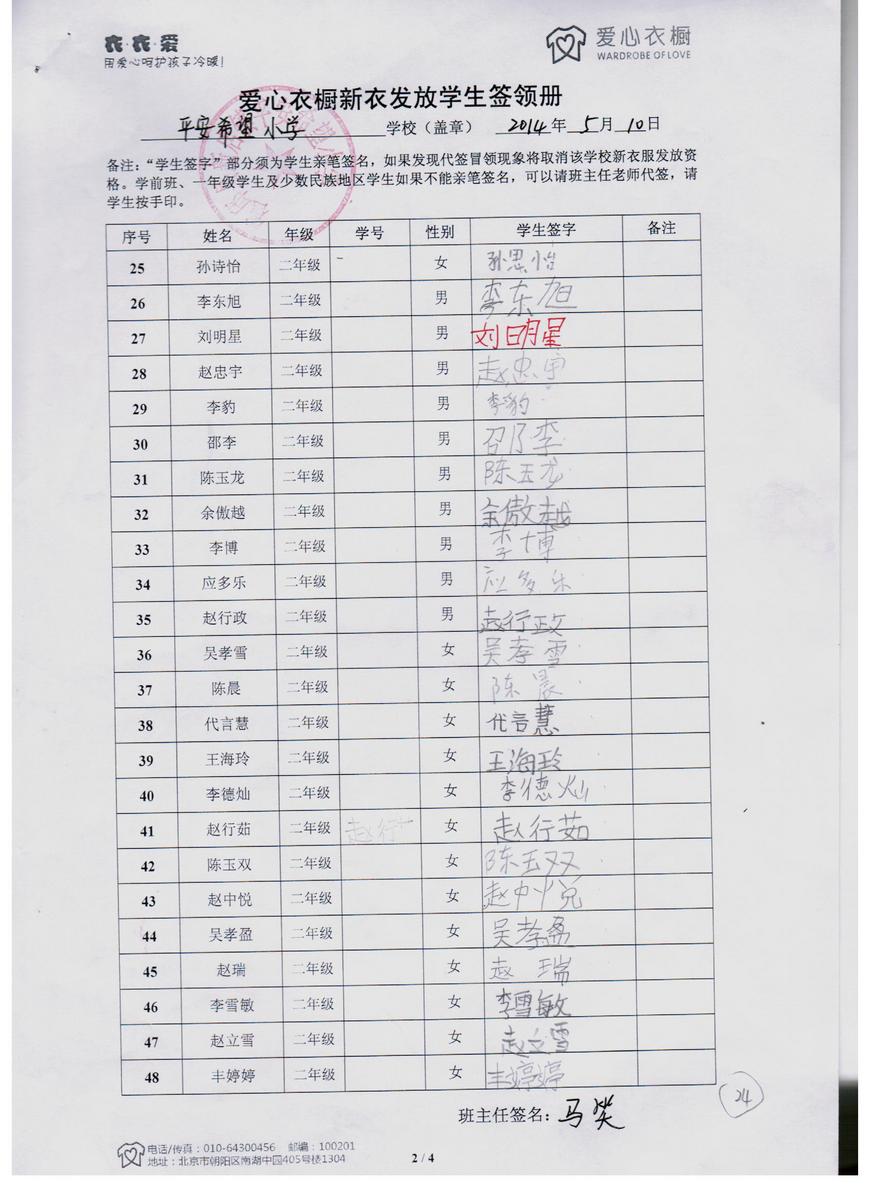 衣·衣·爱
用爱心呵护孩子冷暖!
爱心衣橱
WARDROBE OF LOVE
爱心衣橱新衣发放学生签领册
平安希望小学 学校（盖章） 2014年 5月 10日
备注：“学生签字”部分须为学生亲笔签名，如果发现代签冒领现象将取消该学校新衣服发放资
格。学前班、一年级学生及少数民族地区学生如果不能亲笔签名，可以请班主任老师代签，请
学生按手印。
序号 姓名 年级 学号 性别 学生签字 备注
25 孙诗怡 二年级 女 孙思怡
26 李东旭 二年级 男 李东旭
27 刘明星 二年级 男 刘明星
28 赵忠宇 二年级 男 赵忠宇
29 李豹 二年级 男 李豹
30 邵李 二年级 男 邵李
31 陈玉龙 二年级 男 陈玉龙
32 余傲越 二年级 男 余傲越
33 李博 二年级 男 李博
34 应多乐 二年级 男 应多乐
35 赵行政 二年级 男 赵行政
36 吴孝雪 二年级 女 吴孝雪
37 陈晨 二年级 女 陈晨
38 代言慧 二年级 女 代言慧
39 王海玲 二年级 女 王海玲
40 李德灿 二年级 女 李德灿
41 赵行茹 二年级 赵行 女 赵行茹
42 陈玉双 二年级 女 陈玉双
43 赵中悦 二年级 女 赵中悦
44 吴孝盈 二年级 女 吴孝盈
45 赵瑞 二年级 女 赵瑞
46 李雪敏 二年级 女 李雪敏
47 赵立雪 二年级 女 赵立雪
48 丰婷婷 二年级 女 丰婷婷
24
班主任签名：马笑
电话/传真：010-64300456 邮编：100201
地址：北京市朝阳区南湖中园405号楼1304
2 / 4